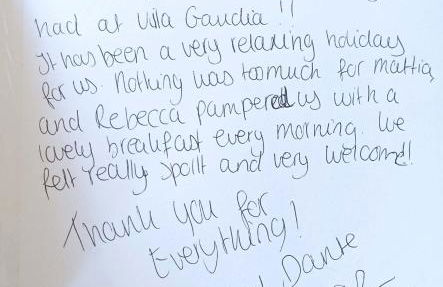 had at Villa Gaudia !!
It has been a very relaxing holiday
for us. Nothing was too much for Mattia,
and Rebecca pampered us with a
lovely breakfast every morning. We
felt really spoilt and very welcome!
Thank you for
Everything!
Dante